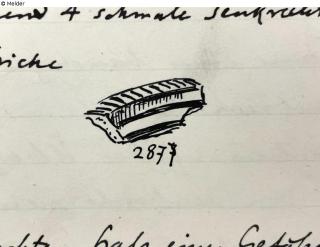 © Melder
und 4 schmale Senkrecht
riche
2877
Hals einer Gefäß